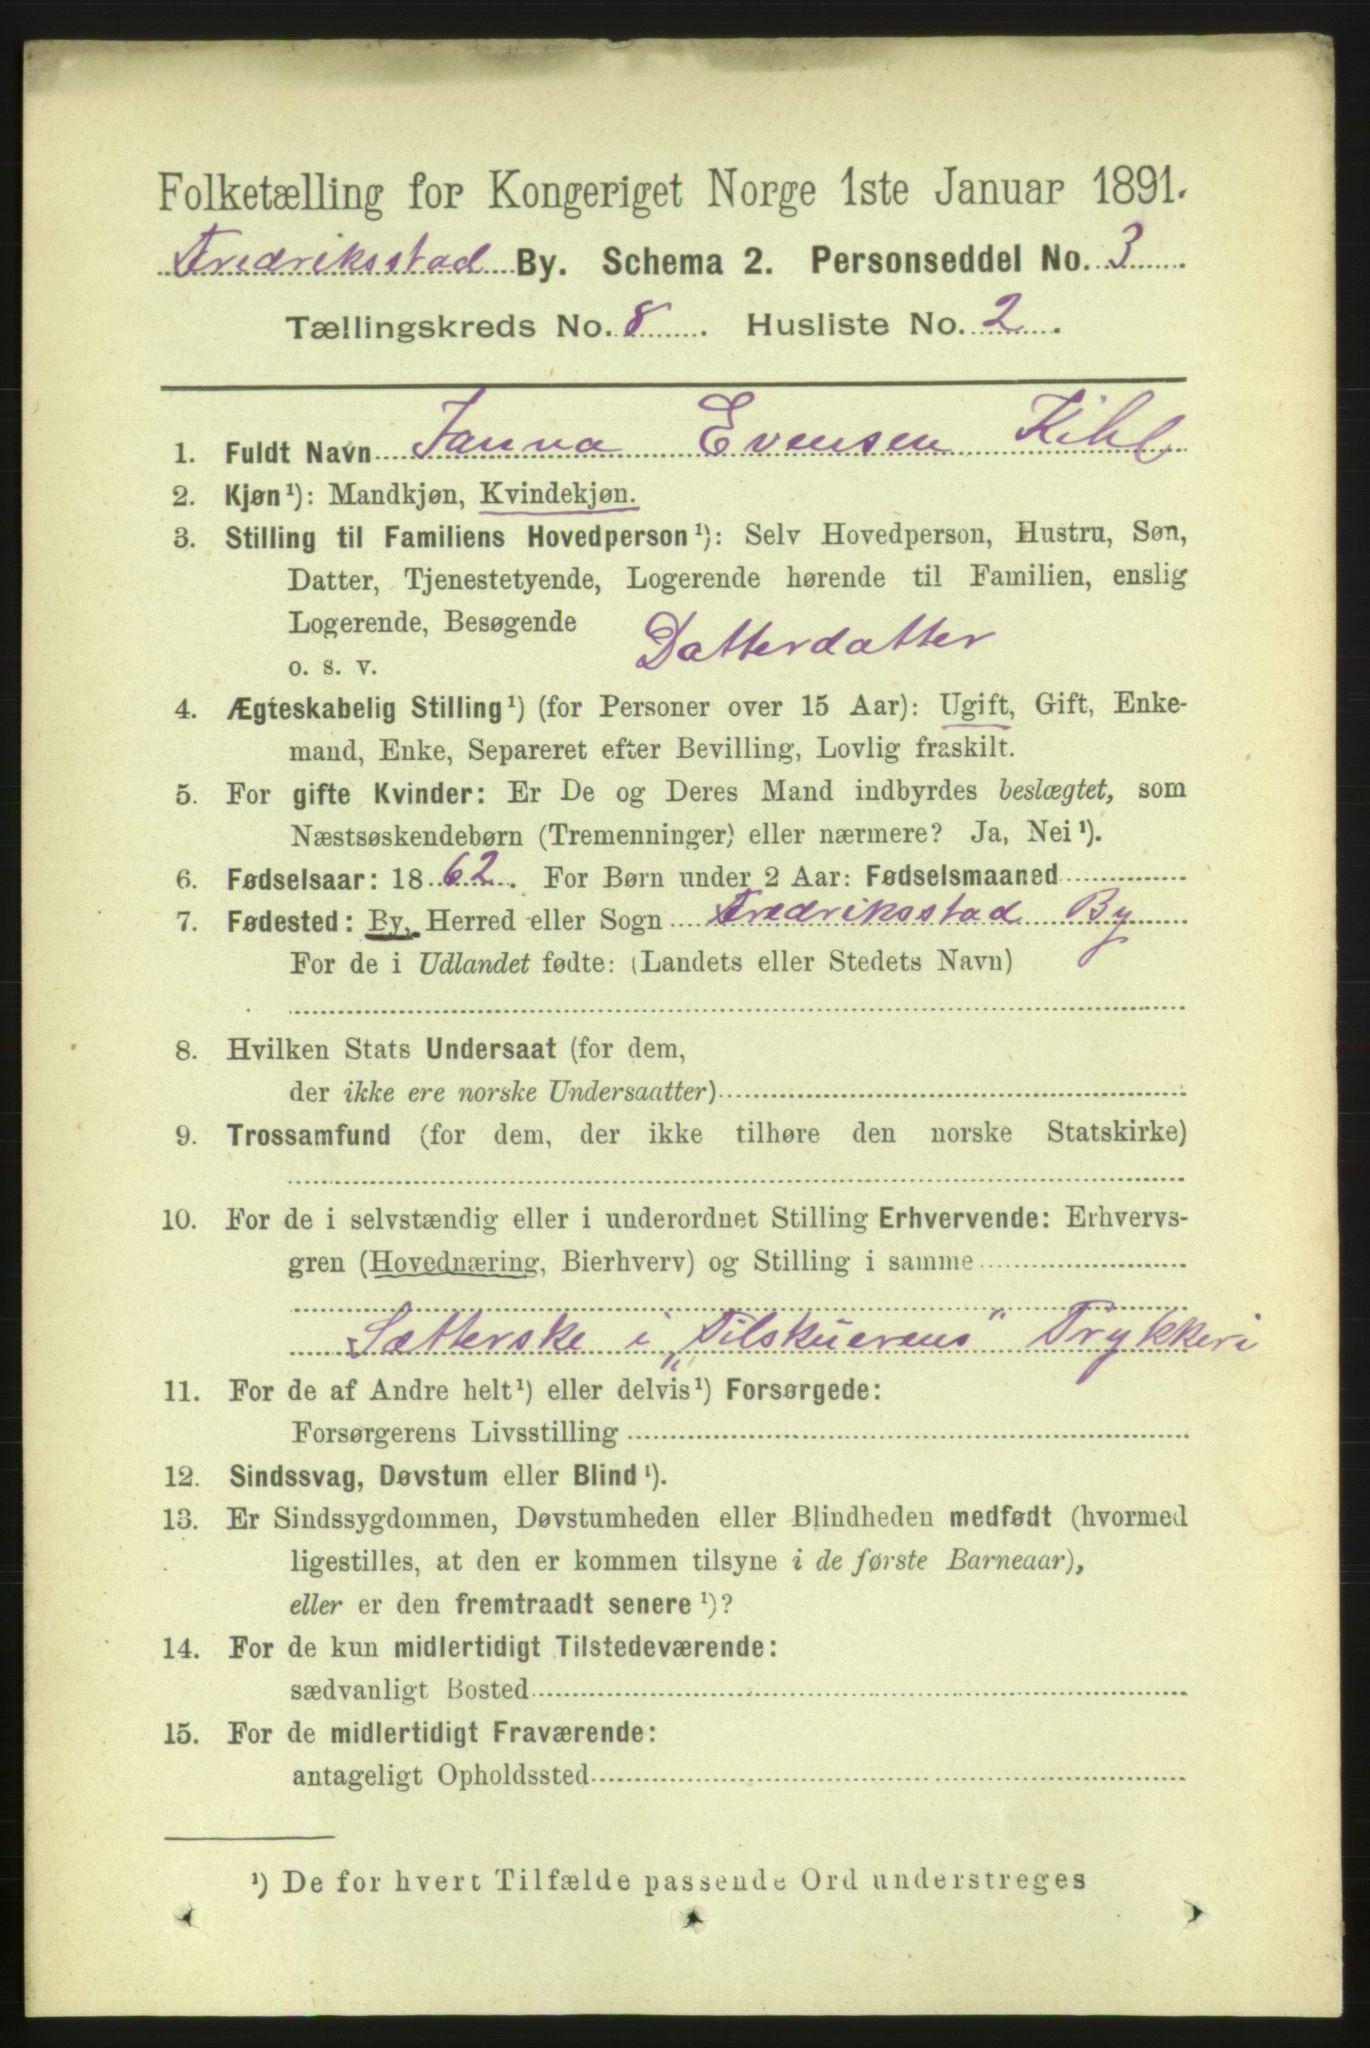 Folketælling for Kongeriget Norge 1ste Januar 1891.
Fredriksstad By. Schema 2. Personseddel No. 3
Tællingskreds No. 8. Husliste No. 2.
1. Fuldt Navn Janna Evensen Kihl
2. Kjøn¹): Mandkjøn, Kvindekjøn.
3. Stilling til Familiens Hovedperson¹): Selv Hovedperson, Hustru, Søn,
Datter, Tjenestetyende, Logerende hørende til Familien, enslig
Logerende, Besøgende
o. s. v. Datterdatter
4. Ægteskabelig Stilling¹) (for Personer over 15 Aar): Ugift, Gift, Enke-
mand, Enke, Separeret efter Bevilling, Lovlig fraskilt.
5. For gifte Kvinder: Er De og Deres Mand indbyrdes beslægtet, som
Næstsøskendebørn (Tremenninger) eller nærmere? Ja, Nei¹).
6. Fødselsaar: 1862. For Børn under 2 Aar: Fødselsmaaned
7. Fødested: By, Herred eller Sogn Fredriksstad By
For de i Udlandet fødte: (Landets eller Stedets Navn)
8. Hvilken Stats Undersaat (for dem,
der ikke ere norske Undersaatter)
9. Trossamfund (for dem, der ikke tilhøre den norske Statskirke)
10. For de i selvstændig eller i underordnet Stilling Erhvervende: Erhvervs-
gren (Hovednæring, Bierhverv) og Stilling i samme
Sætterske i „Tilskuerens" Trykkeri
11. For de af Andre helt¹) eller delvis¹) Forsørgede:
Forsørgerens Livsstilling
12. Sindssvag, Døvstum eller Blind¹).
13. Er Sindssygdommen, Døvstumheden eller Blindheden medfødt (hvormed
ligestilles, at den er kommen tilsyne i de første Barneaar),
eller er den fremtraadt senere¹)?
14. For de kun midlertidigt Tilstedeværende:
sædvanligt Bosted
15. For de midlertidigt Fraværende:
antageligt Opholdssted
¹) De for hvert Tilfælde passende Ord understreges